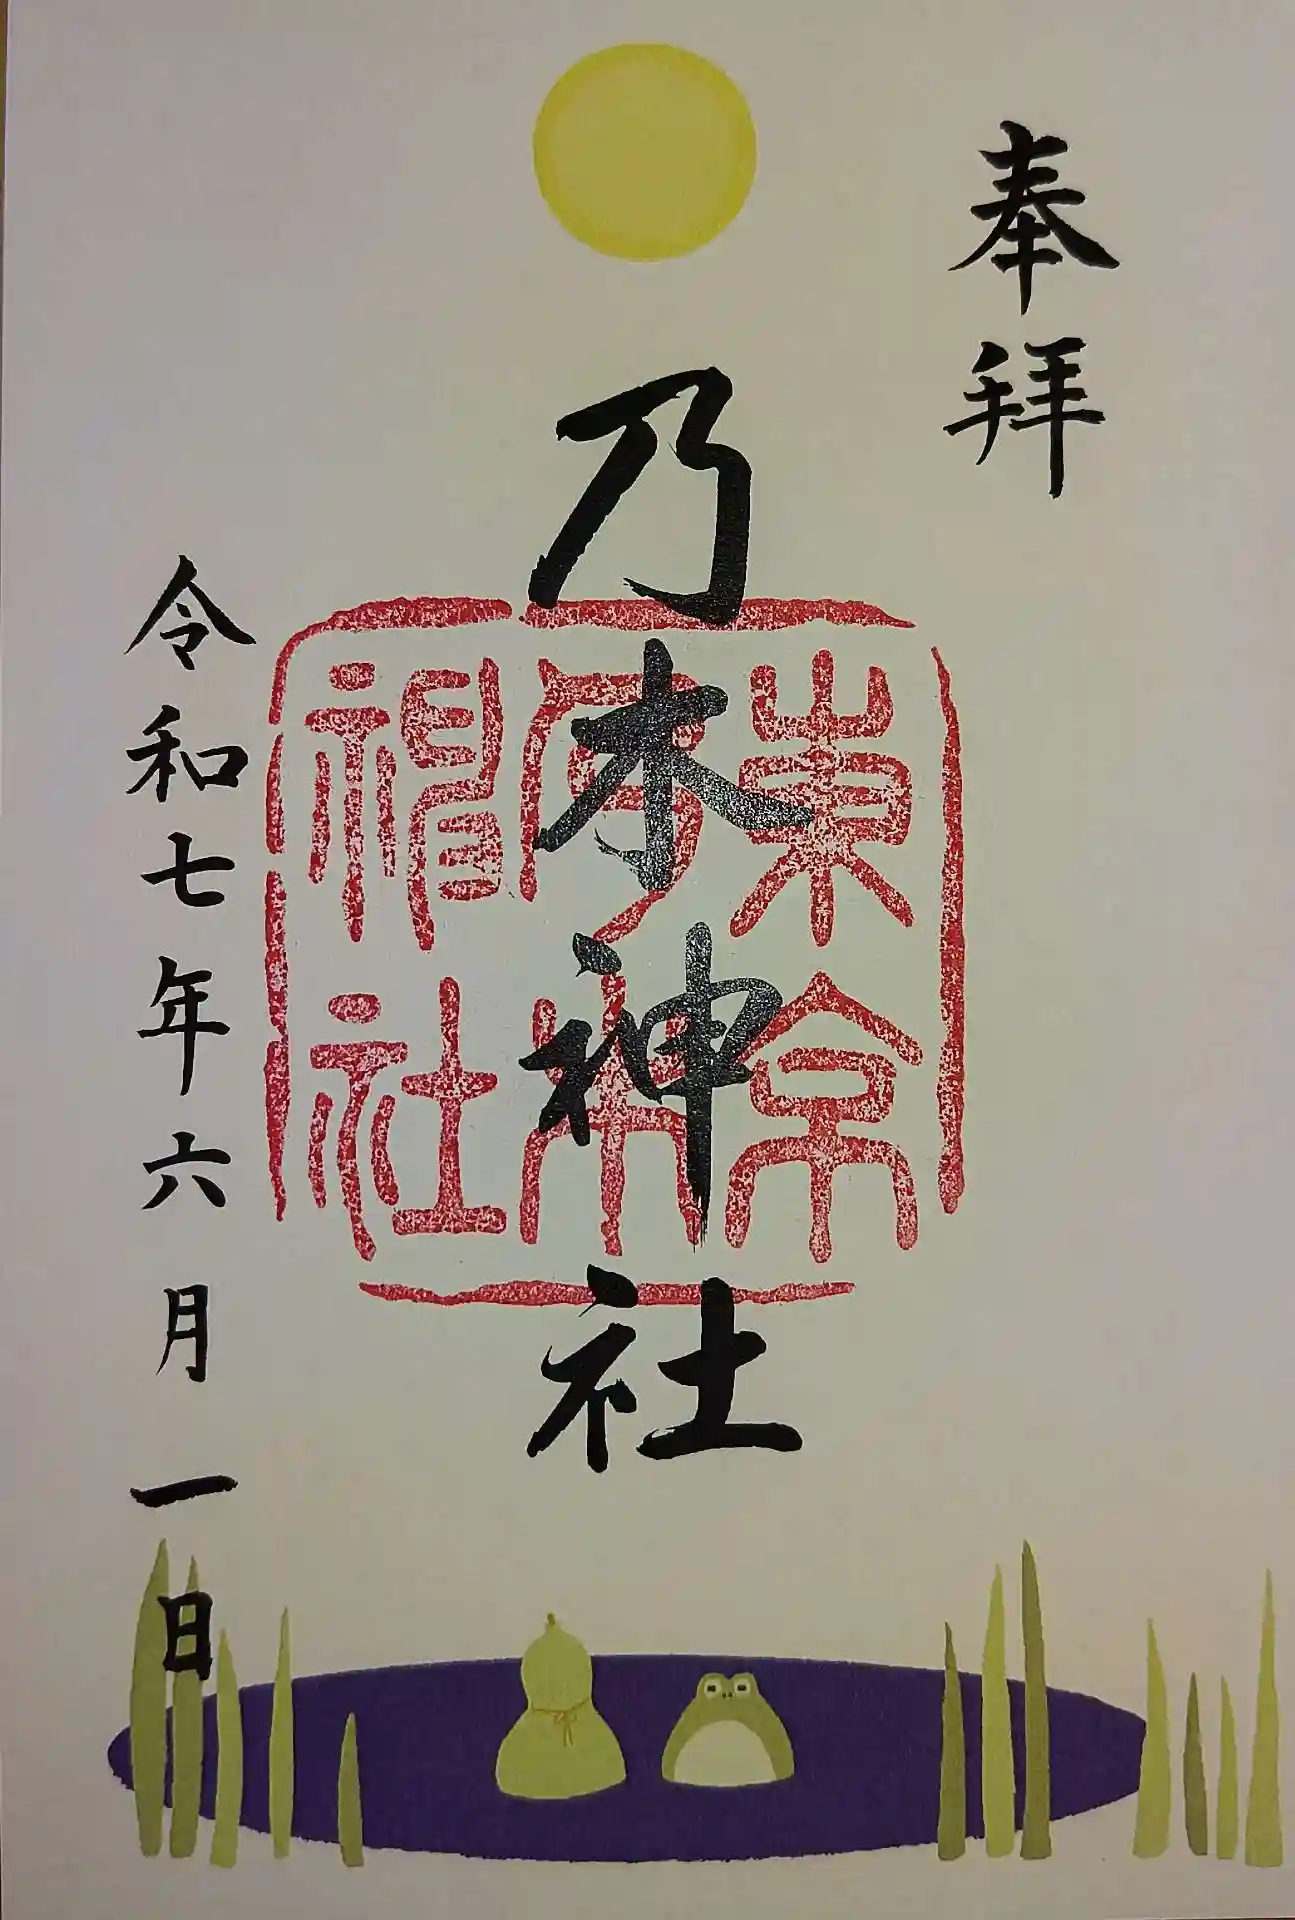 奉拝
乃木神社
東京
乃木
神社
令和七年六月一日